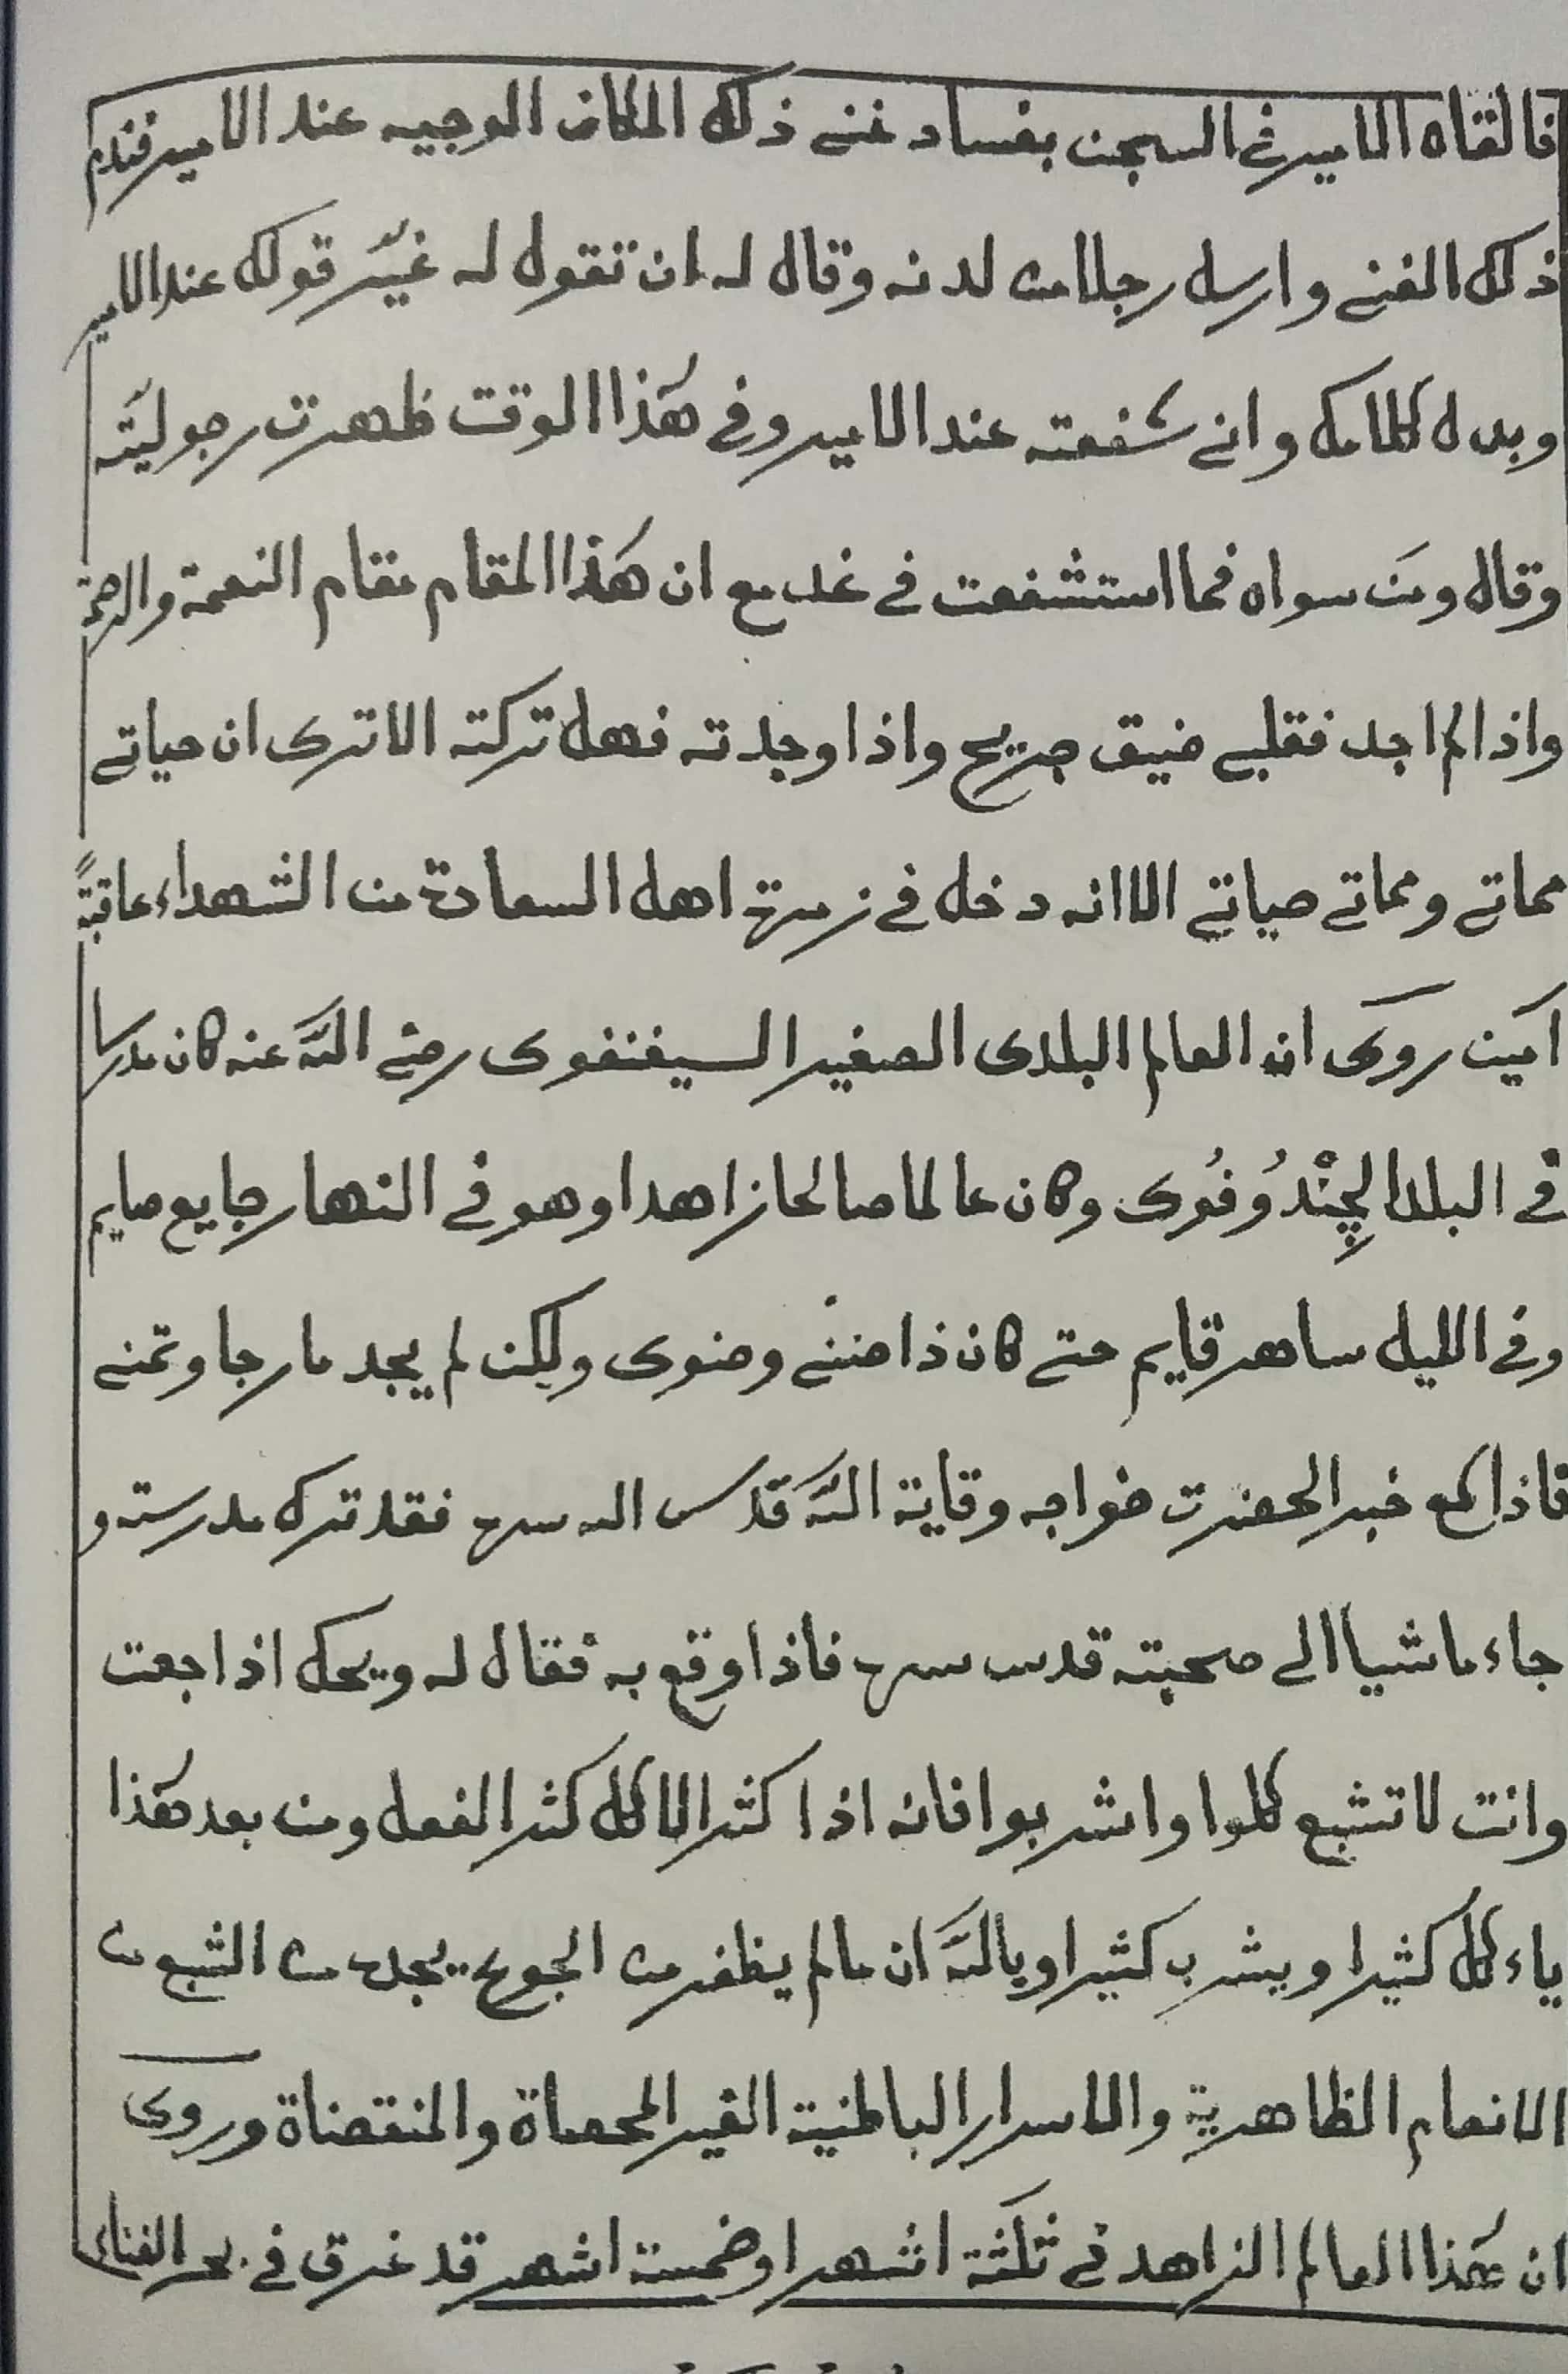 فالقاه الامير فى السجن بفساد غنى ذلك المكان الوجيه عند الامير فندم
ذلك الغنى وارسل رجلا من لدنه وقال له ان تقول له غيّر قولك عند الامير
وبدل كلامك وانى شفعته عند الامير وفى هٰذا الوقت ظهرت رجوليته
وقال ومن سواه فما استشفعت فى غد مع ان هٰذا المقام مقام النعمة والرحمة
واذا لم اجد فقلبى ضيق جريح واذا وجدته فهل تركته الا ترى ان حياتى
مماتى ومماتى حياتى الا انه دخل فى زمرة اهل السعادة من الشهداء عاقبةً
آمين روى ان العالم البلدى الصغير السيفنفوى رضى اللّه عنه كان مدرسا
فى البلد الچِنْدُوفُوى وكان عالما صالحا زاهدا وهو فى النهار جايع صايم
وفى الليل ساهر قايم حتى كان ذا ضنى وضوى ولكن لم يجد ما رجا وتمنى
فاذا سمع خبر الحضرت خواجه وقاية اللّه قدس اله سره فقد ترك مدرسته و
جاء ماشيا الى صحبته قدس سره فاذا وقع به فقال له ويحك اذا جعت
وانت لا تشبع كلوا واشربوا فانه اذا كثر الاكل كثر الفعل ومن بعد هٰذا
ياءكل كثيرا ويشرب كثيرا وباللّه ان ما لم يظفر من الجوع يجده من الشبع من
الانعام الظاهرية والاسرار الباطنية الغير المحصاة والمنقضاة وروى
ان هٰذا العالم الزاهد فى ثلٰثة اشهر او خمسة اشهر قد غرق فى بحر الفناء